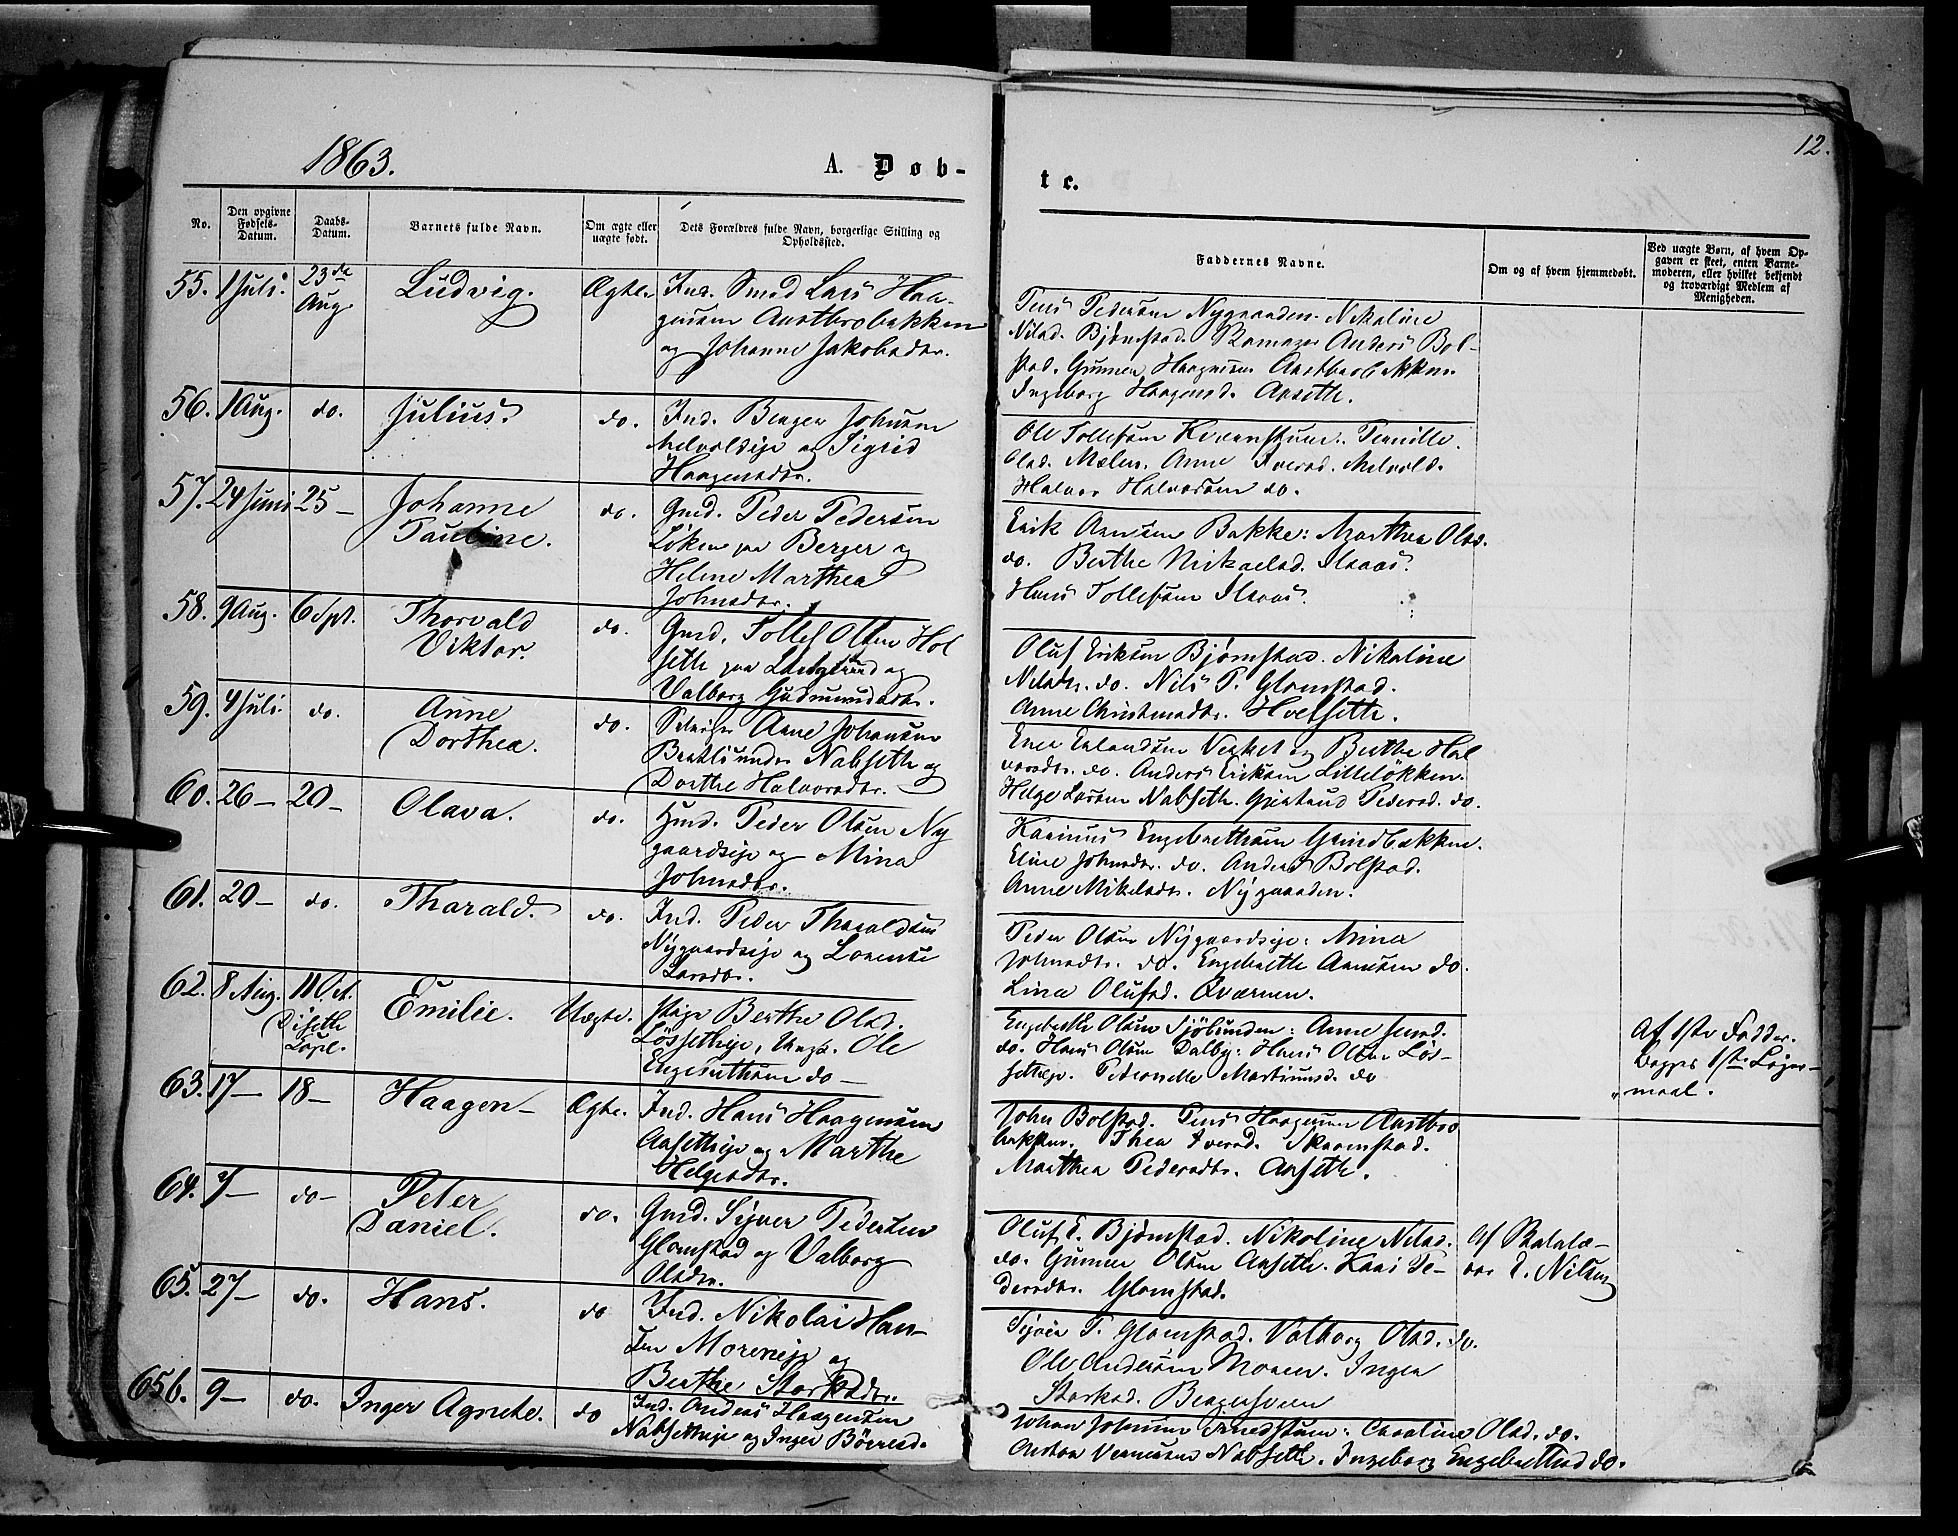 1863.
A. Døb-
te.
12.
No.
Den opgivne Fødsels-Datum.
Daabs-Datum.
Barnets fulde Navn.
Om ægte eller uægte født.
Dets Forældres fulde Navn, borgerlige Stilling og Opholdssted.
Faddernes Navne.
Om og af hvem hjemmedøbt.
Ved uægte Børn, af hvem Opgaven er skeet, enten Barnemoderen, eller hvilket bekjendt og troværdigt Medlem af Menigheden.
55. 1 Juli. 23de Aug. Ludvig. Ægte. Ind. Smed Lars Haa-
gensen Aastbrobakken
og Johanne Jakobsdtr.
Jens Pedersen Nygaarden. Nikoline
Nilsd. Bjørnstad. Anders Bol-
stad. Gunner Haagensen Aastbrobakken.
Ingeborg Haagensd. Aasette.
56. 1 Aug. do. Julius. do. Ind. Berger Johnsen
og Sigrid
Haagensdtr.
Ole Tollefsen Kvernstuen. Pernille
Olsd. Mælen. Anne Iversd. Melvold.
Halvor Halvorsen do.
57. 24 Juni 25 – Johanne
Pauline. do. Gmd. Peder Pedersen
Løken paa Berger og
Helene Marthea
Johnsdtr.
Erik Bakke: Marthea Olsd.
do. Berthe Mikaelsd.
Hans Tollefsen
58. 9 Aug. 6 Spt. Thorvald
Viktor. do. Gmd. Tollef Olsen Hol
sette paa og
Valborg Gudmundsdtr.
Oluf Eriksen Bjørnstad. Nikoline
Nilsdtr. do. Nils P. Glomstad.
Anne Christensdtr. Holsette.
59. 4 Juli. do. Anne
Dorthea. do. Arne Johansen
under Nabsette og
Dorthe Halvorsdtr.
Einer Erlandsen og Berthe Hal
vorsdtr. do. Anders Eriksen Lilleløkken.
Helge Larsen Nabsette. Gjertrud Pedersd. do.
60. 26 – 20 – Olava. do. Hmd. Peder Olsen Ny
gaardseje og Mina
Johnsdtr.
Karinus Engebrethsen Grindbakken.
Eline Johnsdtr. do. Anders Bolstad.
Anne Mikelsdtr. Nygaarden.
61. 20 – do. Tharald. do. Ind. Peder Tharaldsen
Nygaardseje og Lorense
Larsdtr.
Peder Olsen Nygaardseje: Mina
Johnsdtr. do. Engebrette do.
Lina Olufsd. Qværnen.
62. 8 Aug. 11 Oct.
Emilie. Uægte. Pige Berthe Olsd.
Løssetheje, Ungk. Ole
Engebrethsen do –
Engebrette Olsen Sjølunden: Anne Jensd.
do. Hans Olsen Dalby: Hans Olsen Løs-
setheje. Pedernelle Martinusd. do
Af 1ste Fadder.
Begges 1ste Lejer-
maal.
63. 17 – 18 – Haagen – Ægte. Ind. Hans Haagensen
Aasetteje og Marthe
Helgesdtr.
John Bolstad. Jens Haagensen Aastbro
bakken. Thea Iversd. Skaarstad.
Marthea Pedersdtr. Aasette.
64. 7 – do – Peter
Daniel. do. Gmd. Syver Pedersen
Glomstad og Valborg
Olsdtr.
Oluf E. Bjørnstad. Nikoline Nilsd.
do. Gunner Olsen Aasette. Kari Pe-
dersdtr. Glomstad.
Af Skolelæ-
rer E. Nilsen
65. 27 – do. Hans. do Ind. Nikolai Han-
sen Moreneje og
Berthe Storksdtr.
Syver P. Glomstad. Valborg Olsd. do.
Ole Andersen Moren. Inger
Storksd. Bergesveen
65b. 9 – do. Inger Agnete. do Ind. Anders Haagensen
Nabsetteje og Inger Børresd.
Johan Johnsen Caroline Olsd. do.
Anton Nabsette. Ingeborg Engebrethsd do.